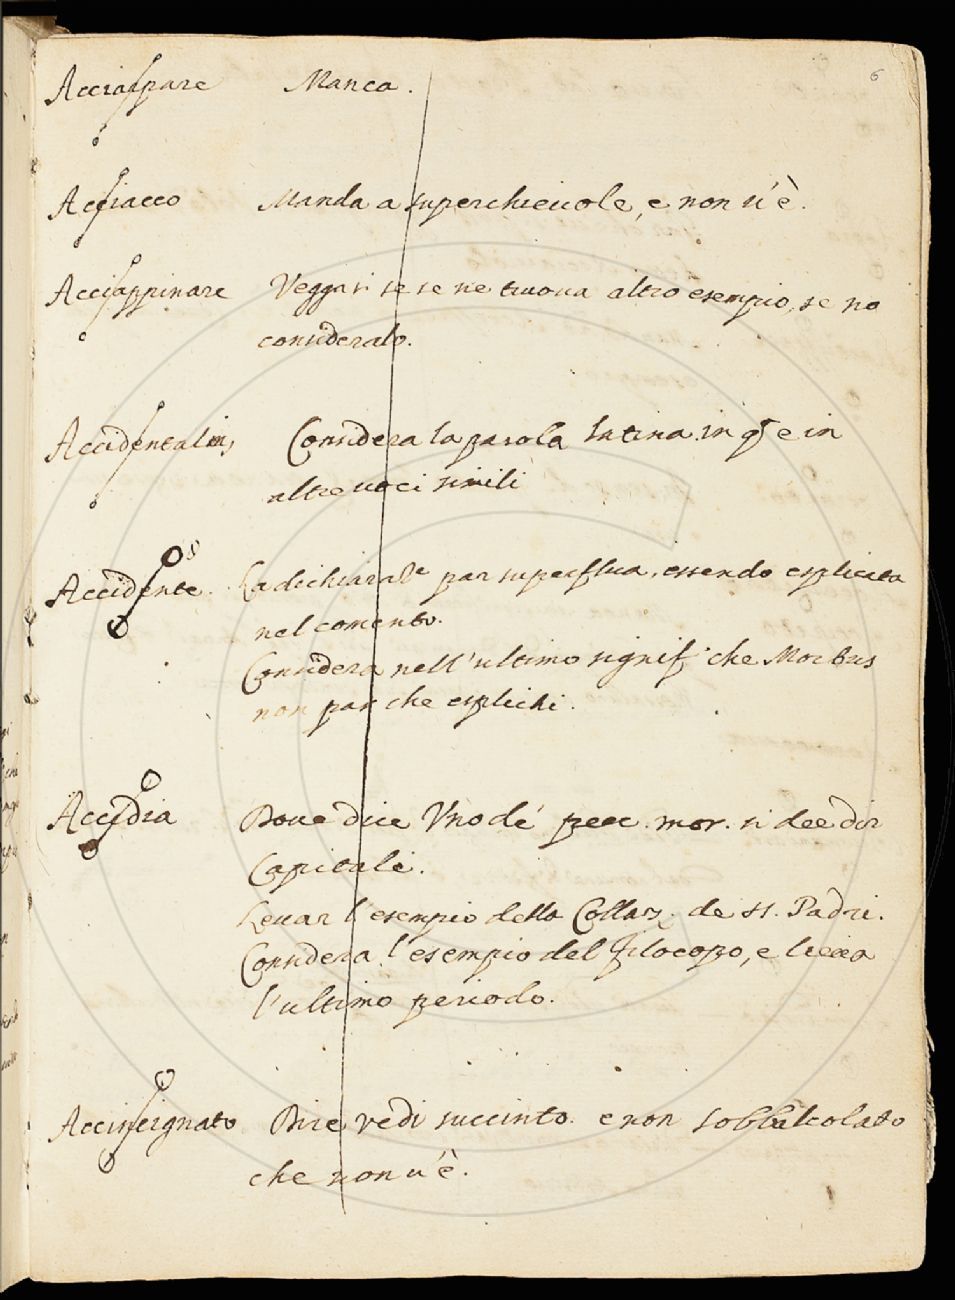 6
Acciarpare Manca.
Acciacco Manda a superchieuole, e non u'è.
Acciappinare Veggasi se se ne truoua altro esempio, se no
consideralo.
Considera la parola latina in qta e in
altre uoci simili
Accidente. La dichiarae par superflua, essendo esplicata
nel comento.
Considera nell'ultimo signif: che Morbus
non par che esplichi.
Accidia Doue dice Vno de' pecc. mor. si dee dir
Capitali.
Leuar l'esempio della Collaz. de SS. Padri.
Considera l'esempio del Filocopo, e lieua
l'ultimo periodo.
Accincignato Dire vedi succinto. e non sobbalcolato
che non u'è.